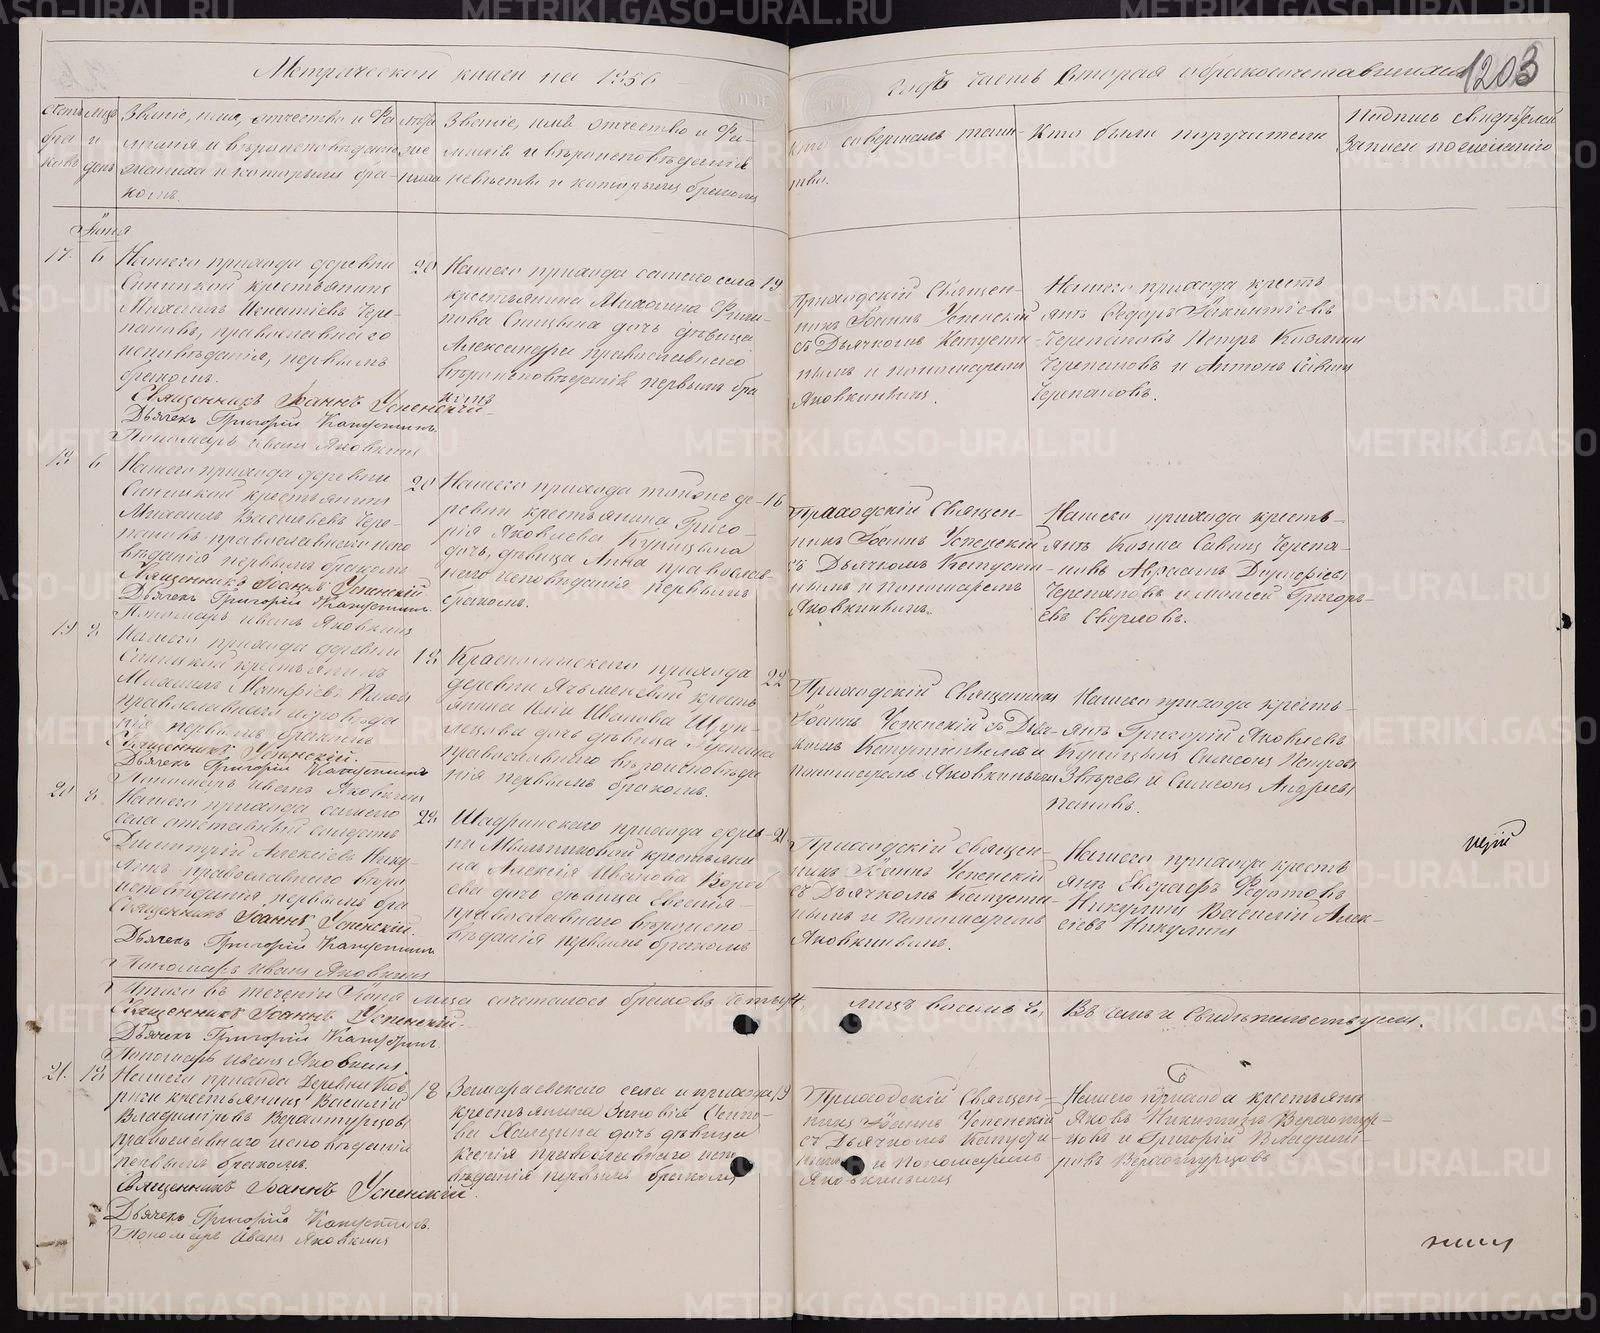 Метрической книги на 1856
годъ часть вторая о бракосочетавшихся
1203
Счетъ браковъ
мѣсяцъ и день
Званіе, имя, отчество и Фа-
милія и вѣроисповѣданіе
жениха и которымъ бра-
комъ.
лѣта жениха
Званіе, имя отчество и Фа-
милія и вѣроисповѣданія
невѣсты и которымъ бракомъ
Кто совершалъ таин-
ство.
Кто были поручители
Подпись свидѣтелей
Записи по желанію
Іюня
17. 6
Нашего прихода деревни
Синицкой крестьянинъ
Михаилъ Игнатіевъ Чере-
пановъ, православнаго
исповѣданія, первымъ
бракомъ.
Священникъ Іоаннъ Успенскій
Дьячекъ Григорій Капустинъ.
Пономарь Иванъ Яковкинъ
20
Нашего прихода самаго села
крестьянина Михаила Фили-
пова Спицына дочь дѣвица
Александра православнаго
вѣроисповѣданія первымъ бра
комъ
19
Приходскій Священ-
никъ Іоаннъ Успенскій
съ Дьячкомъ Капусти-
нымъ и пономаремъ
Яковкинымъ.
Нашего прихода кресть
янъ Федоръ
Черепановъ Петръ Козминъ
Черепановъ и Антонъ Савинъ
Черепановъ.
18 6
Нашего прихода деревни
Синицкой крестьянинъ
Михаилъ Васильевъ Чере-
пановъ православнаго испо
вѣданія первымъ бракомъ
Священникъ Іоаннъ Успенскій
Дьячекъ Григорій Капустинъ.
Пономарь Иванъ Яковкинъ
20
Нашего прихода тойже де-
ревни крестьянина Григо-
рія Яковлева Куницына
дочь, дѣвица Анна православ-
наго исповѣданія первымъ
бракомъ.
16
Приходскій Священ-
никъ Іоаннъ Успенскій
съ Дьячкомъ Капусти-
нымъ и пономаремъ
Яковкинымъ.
Нашего прихода кресть-
янъ Козма Савинъ Черепа-
новъ Авраамъ
Черепановъ и Моисей Григорь-
евъ
19 8
Нашего прихода деревни
Синицкой крестьянинъ
Михаилъ Матфіевъ
православнаго исповѣда
нія первымъ бракомъ
Священникъ Успенскій.
Дьячекъ Григорій Капустинъ
Пономарь Иванъ Яковкинъ
18
прихода
деревни Ячьменевой кресть
янина Иліи Иванова
дочь дѣвица
православнаго вѣроисповѣда
нія первымъ бракомъ.
22
Приходскій Священникъ
Іоаннъ Успенскій съ Дьяч-
комъ Капустинымъ и
пономаремъ Яковкинымъ
Нашего прихода кресть-
янъ Григорій Яковлевъ
Куницынъ Симеонъ Петровъ
Звѣревъ и Симеонъ Андреевъ
Пановъ.
20 8
Нашего прихода самаго
села отставный солдатъ
Димитрій Алексіевъ Нику-
православнаго вѣро
исповѣданія первымъ бра
Священникъ Іоаннъ Успенскій.
Дьячекъ Григорій Капустинъ
Пономарь Иванъ Яковкинъ
Шадринскаго прихода дерев-
ни Мыльниковой крестьяни
на Алексія Иванова Вороб
ева дочь дѣвица Евгенія
православнаго вѣроиспо-
вѣданія первымъ бракомъ
21
Приходскій священ-
никъ Іоаннъ Успенскій
съ Дьячкомъ Капусти-
нымъ и Пономаремъ
Яковкинымъ.
Нашего прихода кресть
янъ Евграфъ Федотовъ
Никулинъ Василій Алек-
сіевъ Никулинъ
щій
Итого въ теченіи Іюня м-ца сочеталося браковъ четыре,
лицъ восемь
Въ семъ и свидѣтельствуемъ.
Священникъ Іоаннъ Успенскій.
Дьячекъ Григорій Капустинъ.
Пономарь Иванъ Яковкинъ.
21. 18
Нашего прихода Деревни Ков-
риги крестьянинъ Василій
Владиміровъ Верхотурцовъ
православнаго исповѣданія
первымъ бракомъ.
Священникъ Іоаннъ Успенскій.
Дьячекъ Григорій Капустинъ.
Пономарь Иванъ Яковкинъ
18
Замараевскаго села и прихода
крестьянина Зиновія Осипо-
ва Халезина дочь дѣвица
Ксенія православнаго испо
вѣданія первымъ бракомъ
19
Приходскій Священ-
никъ Іоаннъ Успенскій
съ Дьячкомъ Капусти-
нымъ и Пономаремъ
Яковкинымъ
Нашего прихода крестьянъ
Яковъ Никитинъ Верхотур-
цовъ и Григорій Владими-
ровъ Верхотурцовъ
METRIKI.GASO-URAL.RU